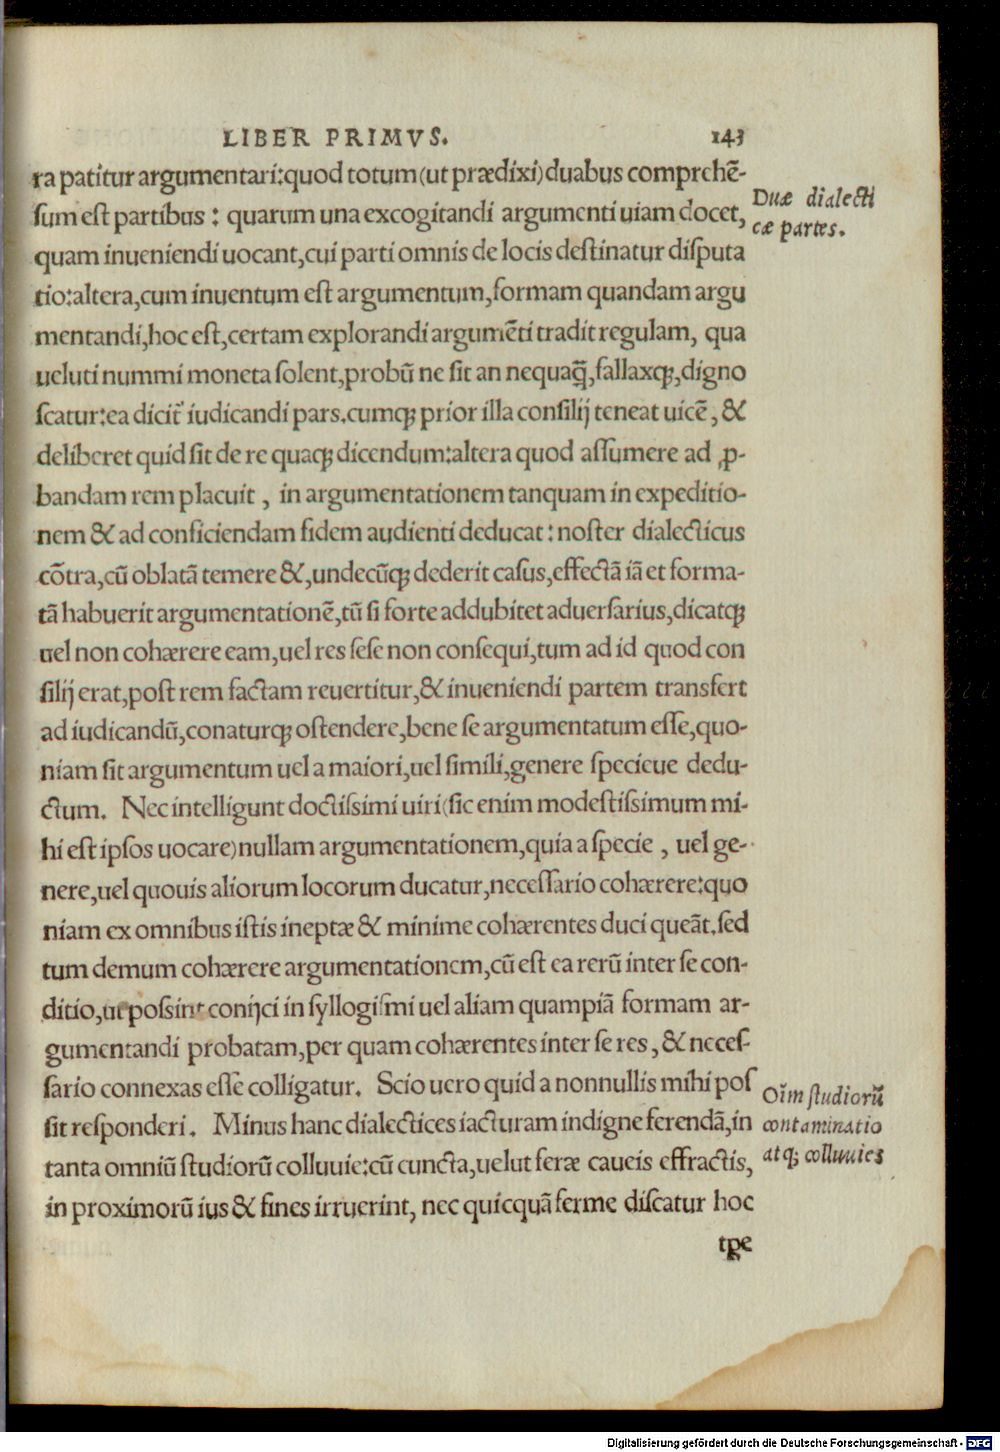 LIBER PRIMVS. 143
ra patitur argumentari:quod totum(ut prædixi)duabus comprehē-
ſum eſt partibus : quarum una excogitandi argumenti uiam docet,
Duæ dialecti
cæ partes.
quam inueniendi uocant,cui parti omnis de locis deſtinatur diſputa
tio:altera,cum inuentum eſt argumentum,formam quandam argu
mentandi,hoc eſt,certam explorandi argumēti tradit regulam, qua
ueluti nummi moneta ſolent,probū ne ſit an nequaq̄,fallaxq;,digno
ſcatur:ea dicit̃ iudicandi pars.cumq; prior illa conſilij teneat uicē, &
deliberet quid ſit de re quaq; dicendum:altera quod aſſumere ad ꝓ-
bandam rem placuit , in argumentationem tanquam in expeditio-
nem & ad conficiendam fidem audienti deducat : noſter dialecticus
cōtra,cū oblatā temere &,undecūq; dederit caſus,effectā iā et forma-
tā habuerit argumentationē,tū ſi forte addubitet aduerſarius,dicatq;
uel non cohærere eam,uel res ſeſe non conſequi,tum ad id quod con
ſilij erat,poſt rem factam reuertitur,& inueniendi partem transfert
ad iudicandū,conaturq; oſtendere,bene ſe argumentatum eſſe,quo-
niam ſit argumentum uel a maiori,uel ſimili,genere ſpecieue dedu-
ctum. Nec intelligunt doctiſsimi uiri(ſic enim modeſtiſsimum mi-
hi eſt ipſos uocare)nullam argumentationem,quia a ſpecie , uel ge-
nere,uel quouis aliorum locorum ducatur,neceſſario cohærere:quo
niam ex omnibus iſtis ineptæ & minime cohærentes duci queāt.ſed
tum demum cohærere argumentationem,cū eſt ea rerū inter ſe con-
ditio,ut poſsint conijci in ſyllogiſmi uel aliam quampiā formam ar-
gumentandi probatam,per quam cohærentes inter ſe res, & neceſ-
ſario connexas eſſe colligatur. Scio uero quid a nonnullis mihi poſ
ſit reſponderi. Minus hanc dialectices iacturam indigne ferendā,in
tanta omniū ſtudiorū colluuie:cū cuncta,uelut feræ caueis effractis,
Oīm ſtudiorū
contaminatio
atq; colluuies
in proximorū ius & fines irruerint, nec quicquā ferme diſcatur hoc
tꝑe
Digitalisierung gefördert durch die Deutsche Forschungsgemeinschaft - DFG